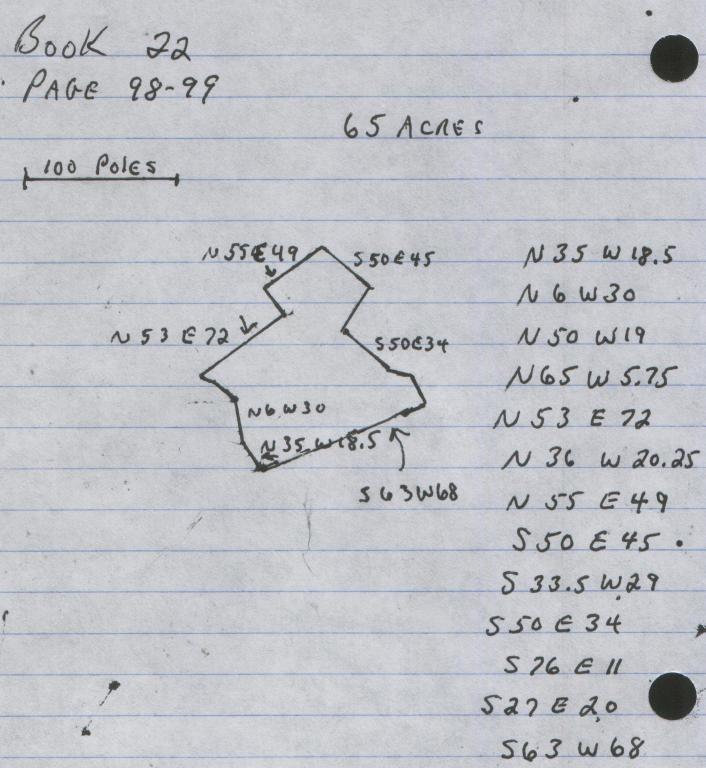 BOOK 22
PAGE 98-99
65 ACRES
100 POLES
N 55 E 49
S 50 E 45
N 53 E 72
S 50 E 34
N 6 W 30
N 35 W 18.5
S 63 W 68
N 35 W 18.5
N 6 W 30
N 50 W 19
N 65 W 5.75
N 53 E 72
N 36 W 20.25
N 55 E 49
S 50 E 45
S 33.5 W 29
S 50 E 34
S 76 E 11
S 27 E 20
S 63 W 68